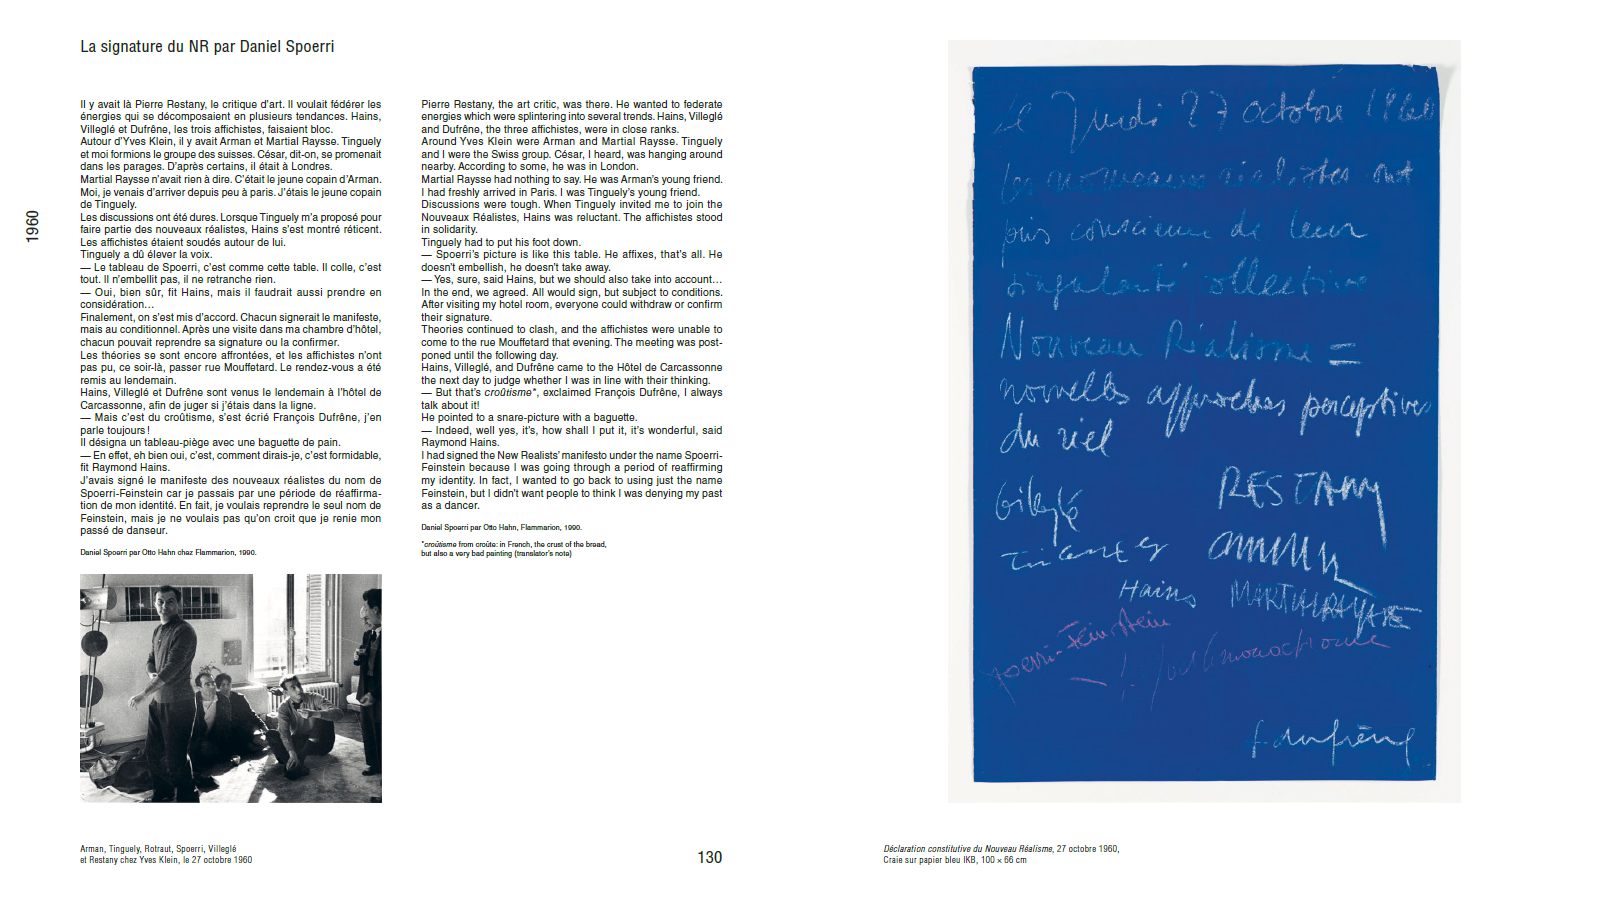 La signature du NR par Daniel Spoerri
Il y avait là Pierre Restany, le critique d'art. Il voulait fédérer les
énergies qui se décomposaient en plusieurs tendances. Hains,
Villeglé et Dufrêne, les trois affichistes, faisaient bloc.
Autour d'Yves Klein, il y avait Arman et Martial Raysse. Tinguely
et moi formions le groupe des suisses. César, dit-on, se promenait
dans les parages. D'après certains, il était à Londres.
Martial Raysse n'avait rien à dire. C'était le jeune copain d'Arman.
Moi, je venais d'arriver depuis peu à paris. J'étais le jeune copain
de Tinguely.
Les discussions ont été dures. Lorsque Tinguely m'a proposé pour
faire partie des nouveaux réalistes, Hains s'est montré réticent.
Les affichistes étaient soudés autour de lui.
Tinguely a dû élever la voix.
— Le tableau de Spoerri, c'est comme cette table. Il colle, c'est
tout. Il n'embellit pas, il ne retranche rien.
— Oui, bien sûr, fit Hains, mais il faudrait aussi prendre en
considération…
Finalement, on s'est mis d'accord. Chacun signerait le manifeste,
mais au conditionnel. Après une visite dans ma chambre d'hôtel,
chacun pouvait reprendre sa signature ou la confirmer.
Les théories se sont encore affrontées, et les affichistes n'ont
pas pu, ce soir-là, passer rue Mouffetard. Le rendez-vous a été
remis au lendemain.
Hains, Villeglé et Dufrêne sont venus le lendemain à l'hôtel de
Carcassonne, afin de juger si j'étais dans la ligne.
— Mais c'est du croûtisme, s'est écrié François Dufrêne, j'en
parle toujours !
Il désigna un tableau-piège avec une baguette de pain.
— En effet, eh bien oui, c'est, comment dirais-je, c'est formidable,
fit Raymond Hains.
J'avais signé le manifeste des nouveaux réalistes du nom de
Spoerri-Feinstein car je passais par une période de réaffirma-
tion de mon identité. En fait, je voulais reprendre le seul nom de
Feinstein, mais je ne voulais pas qu'on croit que je renie mon
passé de danseur.
Daniel Spoerri par Otto Hahn chez Flammarion, 1990.
Pierre Restany, the art critic, was there. He wanted to federate
energies which were splintering into several trends. Hains, Villeglé
and Dufrêne, the three affichistes, were in close ranks.
Around Yves Klein were Arman and Martial Raysse. Tinguely
and I were the Swiss group. César, I heard, was hanging around
nearby. According to some, he was in London.
Martial Raysse had nothing to say. He was Arman's young friend.
I had freshly arrived in Paris. I was Tinguely's young friend.
Discussions were tough. When Tinguely invited me to join the
Nouveaux Réalistes, Hains was reluctant. The affichistes stood
in solidarity.
Tinguely had to put his foot down.
— Spoerri's picture is like this table. He affixes, that's all. He
doesn't embellish, he doesn't take away.
— Yes, sure, said Hains, but we should also take into account…
In the end, we agreed. All would sign, but subject to conditions.
After visiting my hotel room, everyone could withdraw or confirm
their signature.
Theories continued to clash, and the affichistes were unable to
come to the rue Mouffetard that evening. The meeting was post-
poned until the following day.
Hains, Villeglé, and Dufrêne came to the Hôtel de Carcassonne
the next day to judge whether I was in line with their thinking.
— But that's croûtisme*, exclaimed François Dufrêne, I always
talk about it!
He pointed to a snare-picture with a baguette.
— Indeed, well yes, it's, how shall I put it, it's wonderful, said
Raymond Hains.
I had signed the New Realists' manifesto under the name Spoerri-
Feinstein because I was going through a period of reaffirming
my identity. In fact, I wanted to go back to using just the name
Feinstein, but I didn't want people to think I was denying my past
as a dancer.
Daniel Spoerri par Otto Hahn, Flammarion, 1990.
*croûtisme from croûte: in French, the crust of the bread,
but also a very bad painting (translator's note)
1960
Arman, Tinguely, Rotraut, Spoerri, Villeglé
et Restany chez Yves Klein, le 27 octobre 1960
130
le Jeudi 27 octobre 1960
les nouveaux réalistes ont
pris conscience de leur
singularité collective
Nouveau Réalisme =
nouvelles approches perceptives
du réel
RESTANY
Tinguely
Arman
Hains
MARTIAL RAYSSE
Spoerri-Feinstein
Y. le monochrome
f dufrêne
Déclaration constitutive du Nouveau Réalisme, 27 octobre 1960,
Craie sur papier bleu IKB, 100 × 66 cm